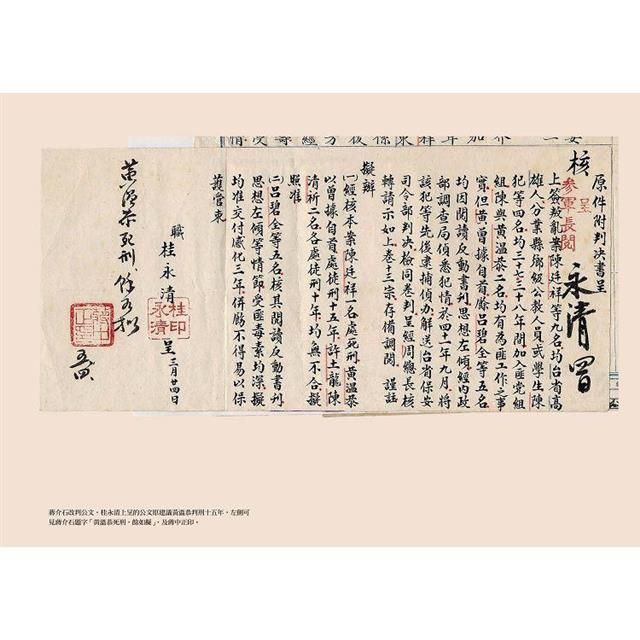 原件附判決書呈
核
呈
參軍長閱
永清
上簽叛亂案陳廷祥等九名均台省高
雄人(分業縣鄉級公教人員或學生陳
犯等四名均三十七三十八年間加入匪黨組
組陳與黃溫恭二名均有為匪工作之事
實但黃曾據自首餘呂碧全等五名
均因閱讀反動書刊思想左傾經內政
部調查局偵悉犯情於四十一年九月將
該犯等先後逮捕偵辦解送台省保安
司令部判決檢同卷判呈經周總長核
轉請示如上卷十三宗存備調閱謹註
擬辦
(一)經核本案陳廷祥一名處死刑黃溫恭
以曾據自首處徒刑十五年許土龍陳
清祈二名各處徒刑十年均無不合擬
照准
(二)呂碧全等五名核其閱讀反動書刊
思想左傾等情節受匪毒素均深擬
均准交付感化三年併飭不得易以保
護管束
職 桂永清 呈 三月廿四日
桂永清印
黃溫恭死刑,餘如擬
蔣中正印
蔣介石改判公文。桂永清上呈的公文原建議黃溫恭判刑十五年。左側可
見蔣介石題字「黃溫恭死刑,餘如擬」,及蔣中正印。